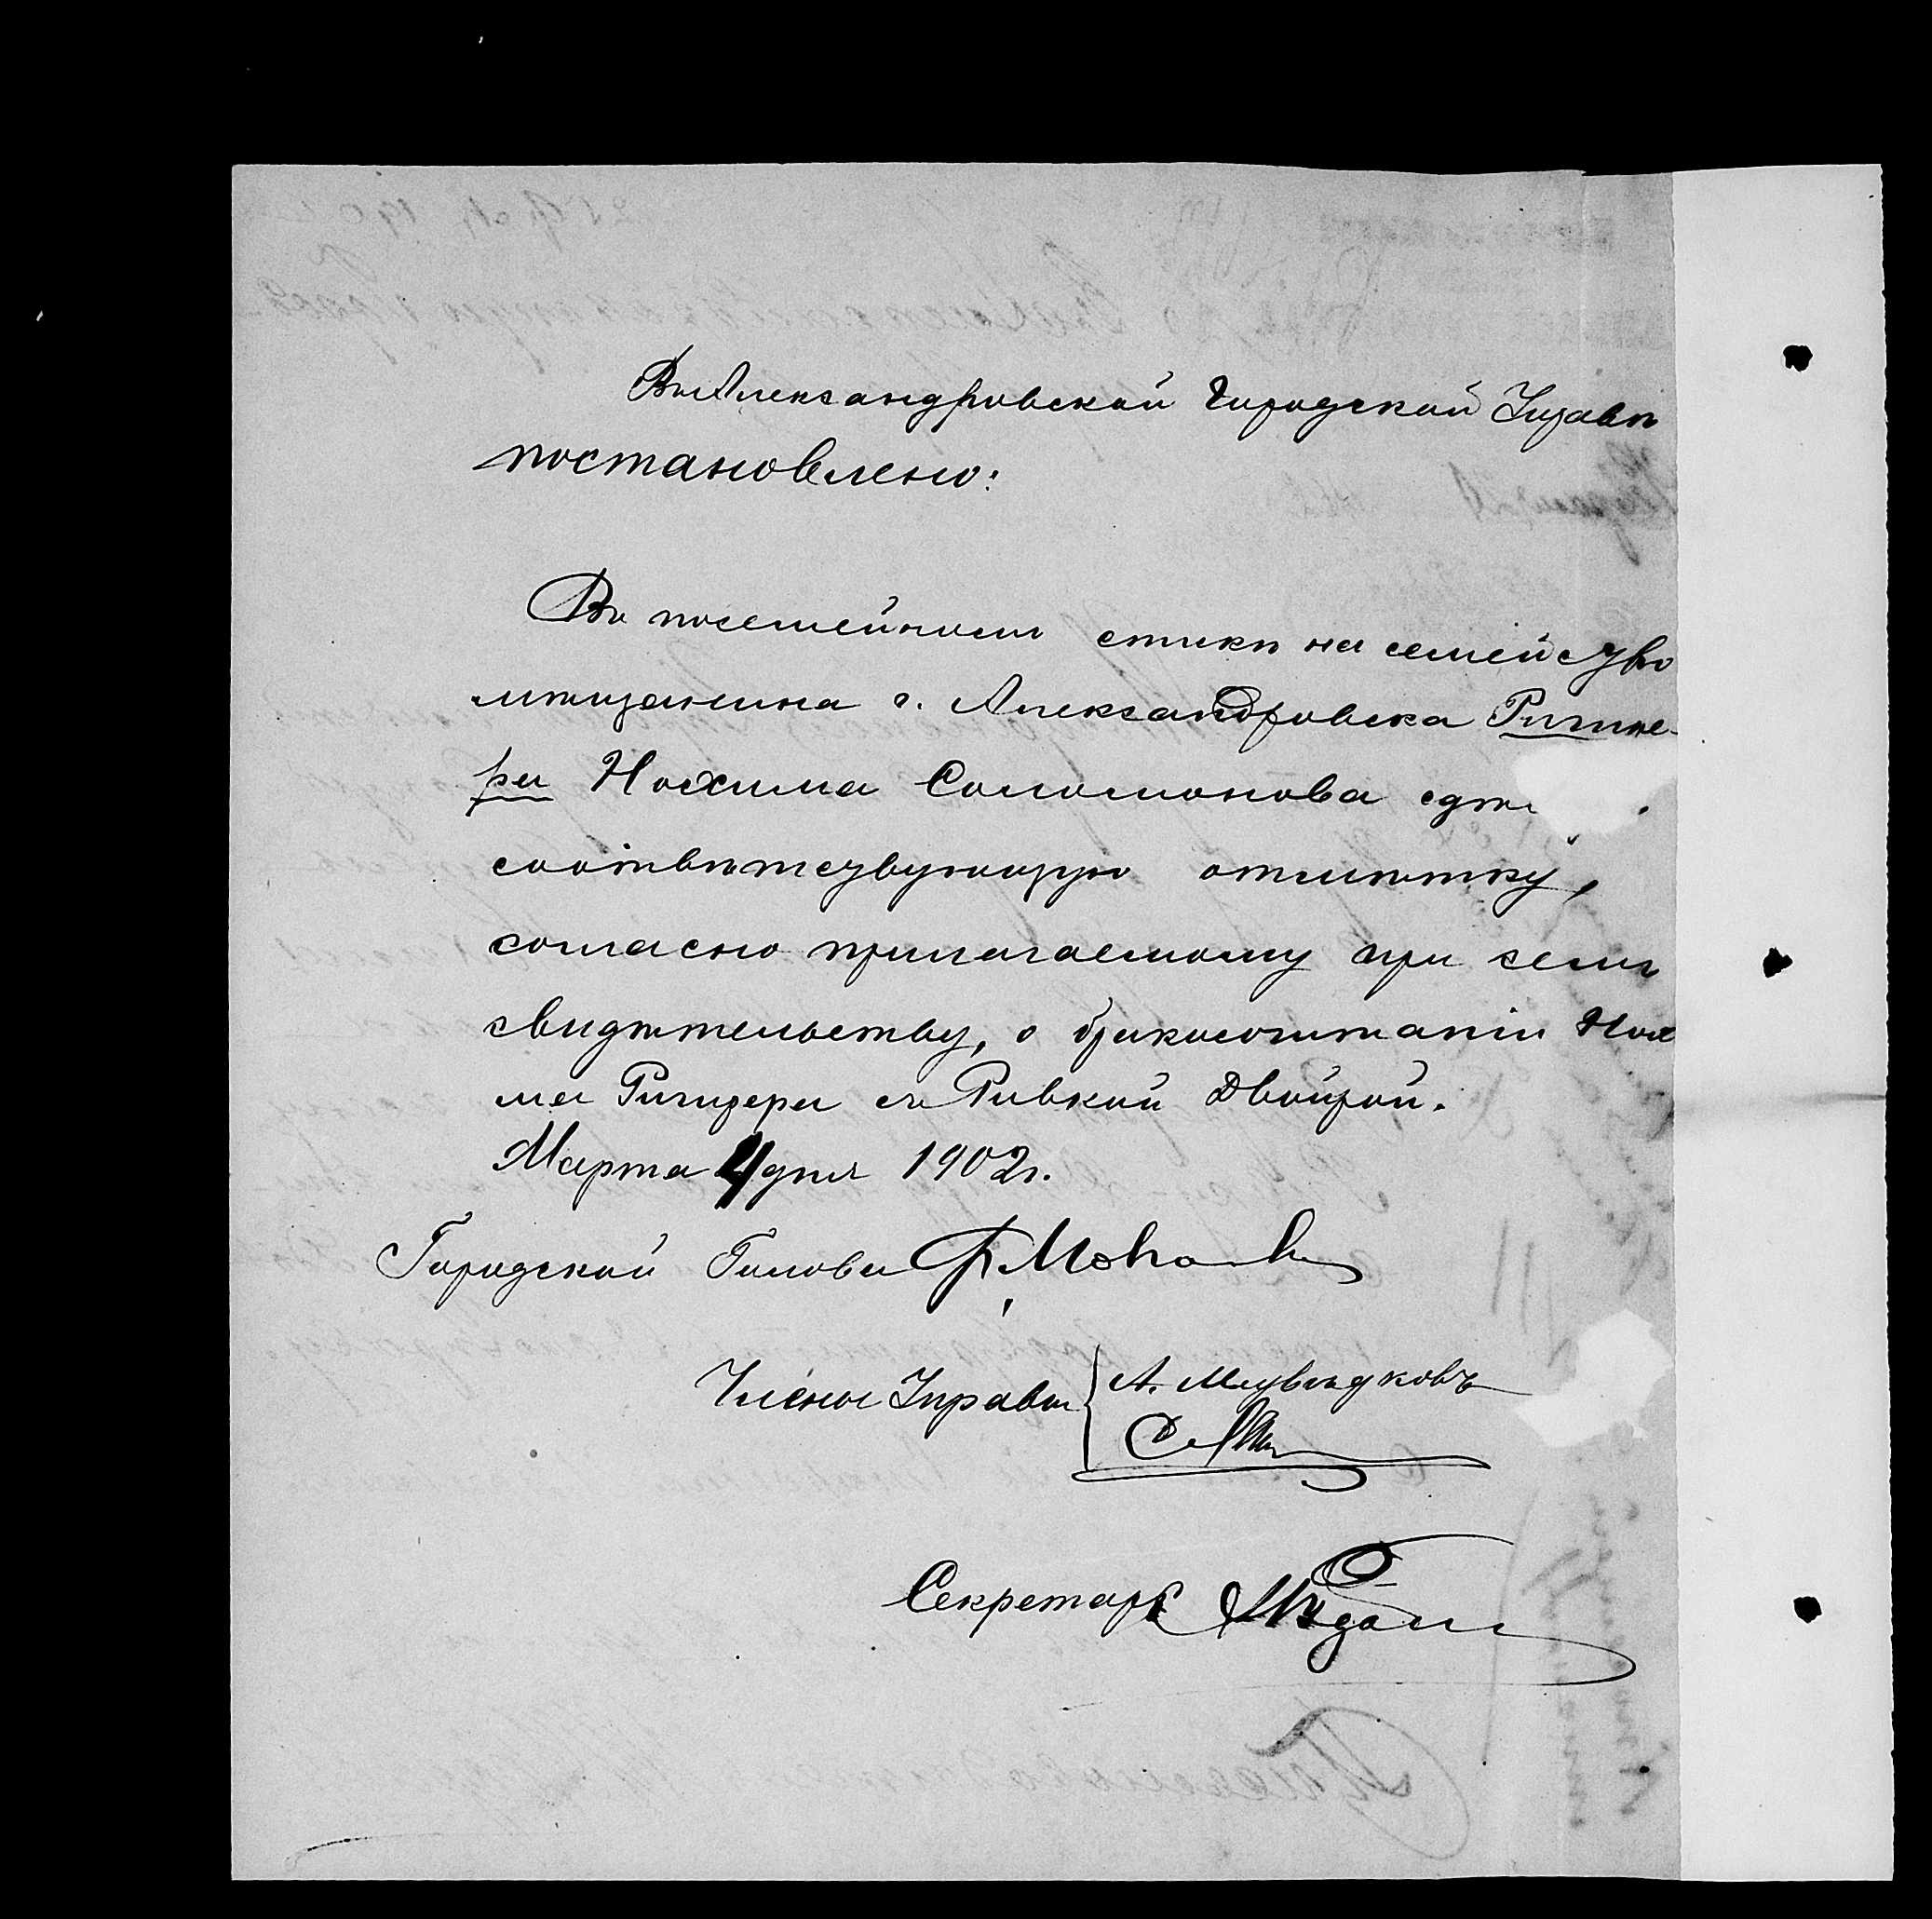 Въ Александровской Городской Управѣ
постановлено:
Въ посемейномъ спискѣ на семейство
мѣщанина г. Александровска Ритце-
ра Нохима Соломонова сдѣ
соотвѣтствующую отмѣтку,
согласно прилагаемому при семъ
свидѣтельству, о бракосочитаніи Нох
ма Ритцера съ Ривкой Двойрой.
Марта 4 дня 1902 г.
Городской Голова
Члены Управы А. Медвѣдковъ
Секретарь